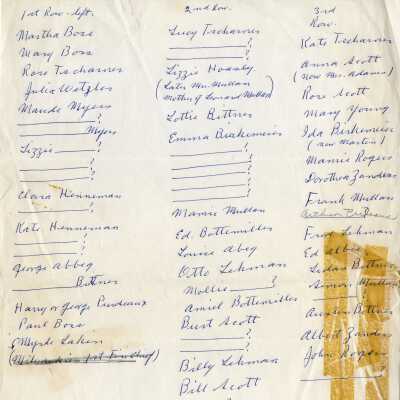 1st Row - left.
Martha Boss
Mary Boss
Rose Tscharner
Julia Wetzler
Maude Myers
________ Myers
Lizzie ________?
________?
________?
Clara Henneman
________?
Kate Henneman
________?
George Abbeg
________ Bittner
Harry or George Prudeaux
Paul Boss
Myrtle Laken
2nd Row.
Lucy Tscharner
________?
________?
Lizzie
(Later Mrs. Mullan)
Mother of Leonard Mullan)
Lottie Bittner
________?
Emma Brakemeier
________?
________?
________?
________?
Mamie Mullan
Ed. Bottemiller
Louise Abeg
Otto Lehman
Mollie ________?
Amiel Bottemiller
Burt Scott
________?
Billy Lehman
Bill Scott
3rd
Row.
Kate Tscharner
Anna Scott
(Now Mrs. Adams)
Rose Scott
Mary Young
Ida Birkemeier
(now Martin)
Mamie Rogers
Dorothea Zanders
Frank Mullan
Arthur
Fred Lehman
Ed Abbeg
Bittner
Simon Mullan
________?
Austin Bittner
________?
Albert Zanders
John Rogers
________?